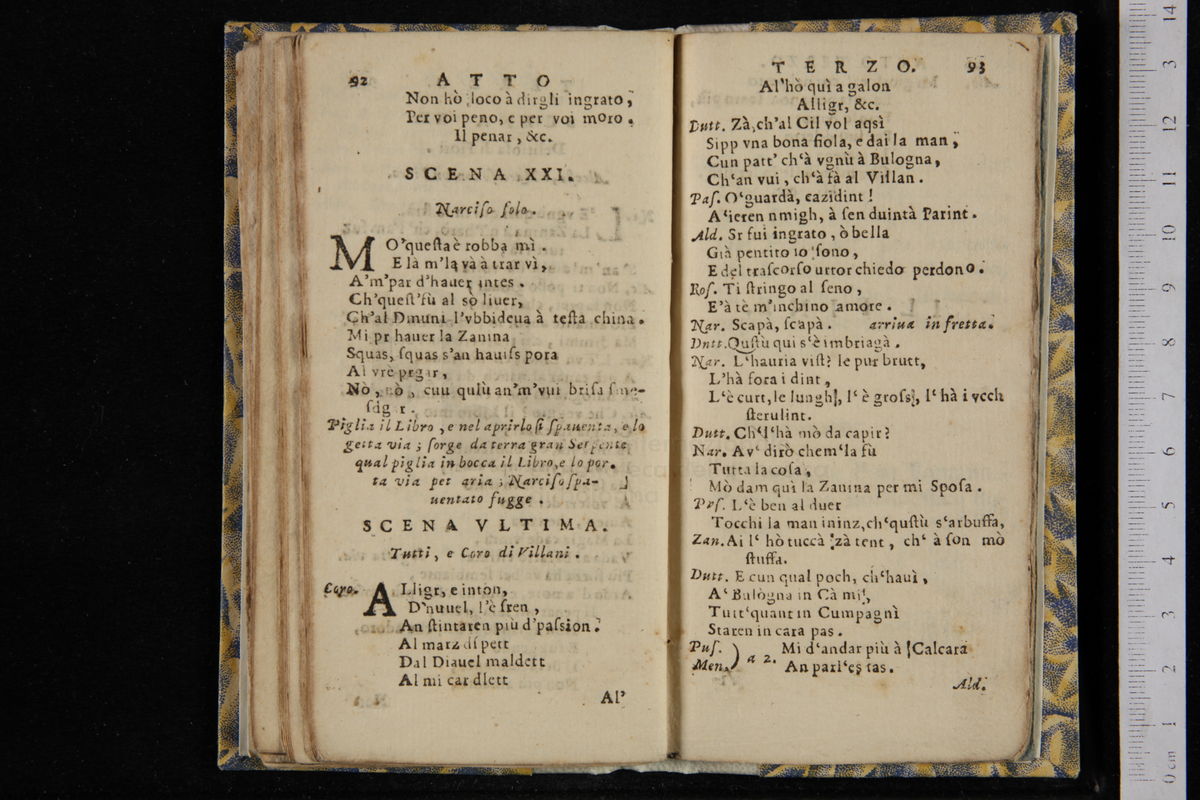 92 ATTO
Non hò loco à dirgli ingrato,
Per voi peno, e per voi moro.
Il penar, &c.
SCENA XXI.
Narciſo ſolo.
MO'queſta è robba mi.
E là m'la và à trar vì,
A'm'par d'hauer intes.
Ch'queſt'fù al sò liuer,
Ch'al Dmuni l'vbbideua à teſta china.
Mi pr hauer la Zanina
Squas, ſquas s'an hauiſs pora
Al vre prgar,
Nò, nò, cuu qulù an'm'vui briſa
Piglia il Libro, e nel aprirlo ſi ſpauenta, e lo
getta via; ſorge da terra gran Serpente
qual piglia in bocca il Libro, e lo por-
ta via per aria; Narciſo ſpa-
uentato fugge.
SCENA VLTIMA.
Tutti, e Coro di Villani.
Coro. ALligr, e inton,
D'nuuel, l'è ſren,
An ſtintaren più d'paſsion.
Al marz diſpett
Dal Diauel maldett
Al mi car dlett
Al'
TERZO. 93
Al'hò quì a galon
Alligr, &c.
Dutt. Zà, ch'al Cil vol aqsì
Sipp vna bona fiola, e dai la man,
Cun patt' ch'à vgnù à Bulogna,
Ch'an vui, ch'à fà al Villan.
Paſ. O'guardà, cazidint!
A'ieren nmigh, à ſen duintà Parint.
Ald. Sr fui ingrato, ò bella
Già pentito io ſono,
E del traſcorſo urror chiedo perdono.
Roſ. Ti ſtringo al ſeno,
E'à tè m'inchino amore.
Nar. Scapà, ſcapà. arriua in fretta.
Dntt. Quſtù qui s'è imbriagà.
Nar. L'hauria viſt? le pur brutt,
L'hà fora i dint,
L'è curt, le lungh, l' è groſs, l' hà i vcch
ſterulint.
Dutt. Ch'l'hà mò da capir?
Nar. Av' dirò chem'la fù
Tutta la coſa,
Mò dam quì la Zanina per mi Spoſa.
Prſ. L'è ben al duer
Tocchi la man ininz, ch'quſtù s'arbuffa,
Zan. Ai l' hò tuccà zà tent, ch' à ſon mò
ſtuffa.
Dutt. E cun qual poch, ch'hauì,
A' Bulògna in Cà mi,
Tutt'quant in Cumpagnì
Staren in cara pas.
Puſ. Men. a 2. Mi d'andar più à Calcara
An parl'es tas.
Ald.